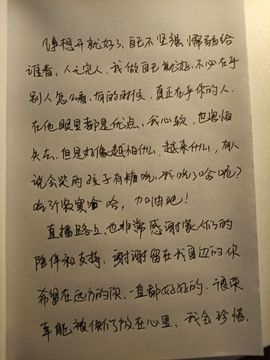 随想开就好了，自不坚强，懦弱给
谁看，人之完人，我做自己就好，不必在乎
别人怎么看，有的时候，真正在乎你的人，
在他眼里都是优点，我心软，也害怕
失去，但是好像越怕什么，越来什么，有人
说会哭的孩子有糖吃，我吃啥呢？
吃了饭窝哈哈，加油吧！
直播路上，也非常感谢家人们的
陪伴和支持，谢谢留在我身边的你
希望在远方的你，一直都好好的，很荣
幸能被你们放在心里，我会珍惜，